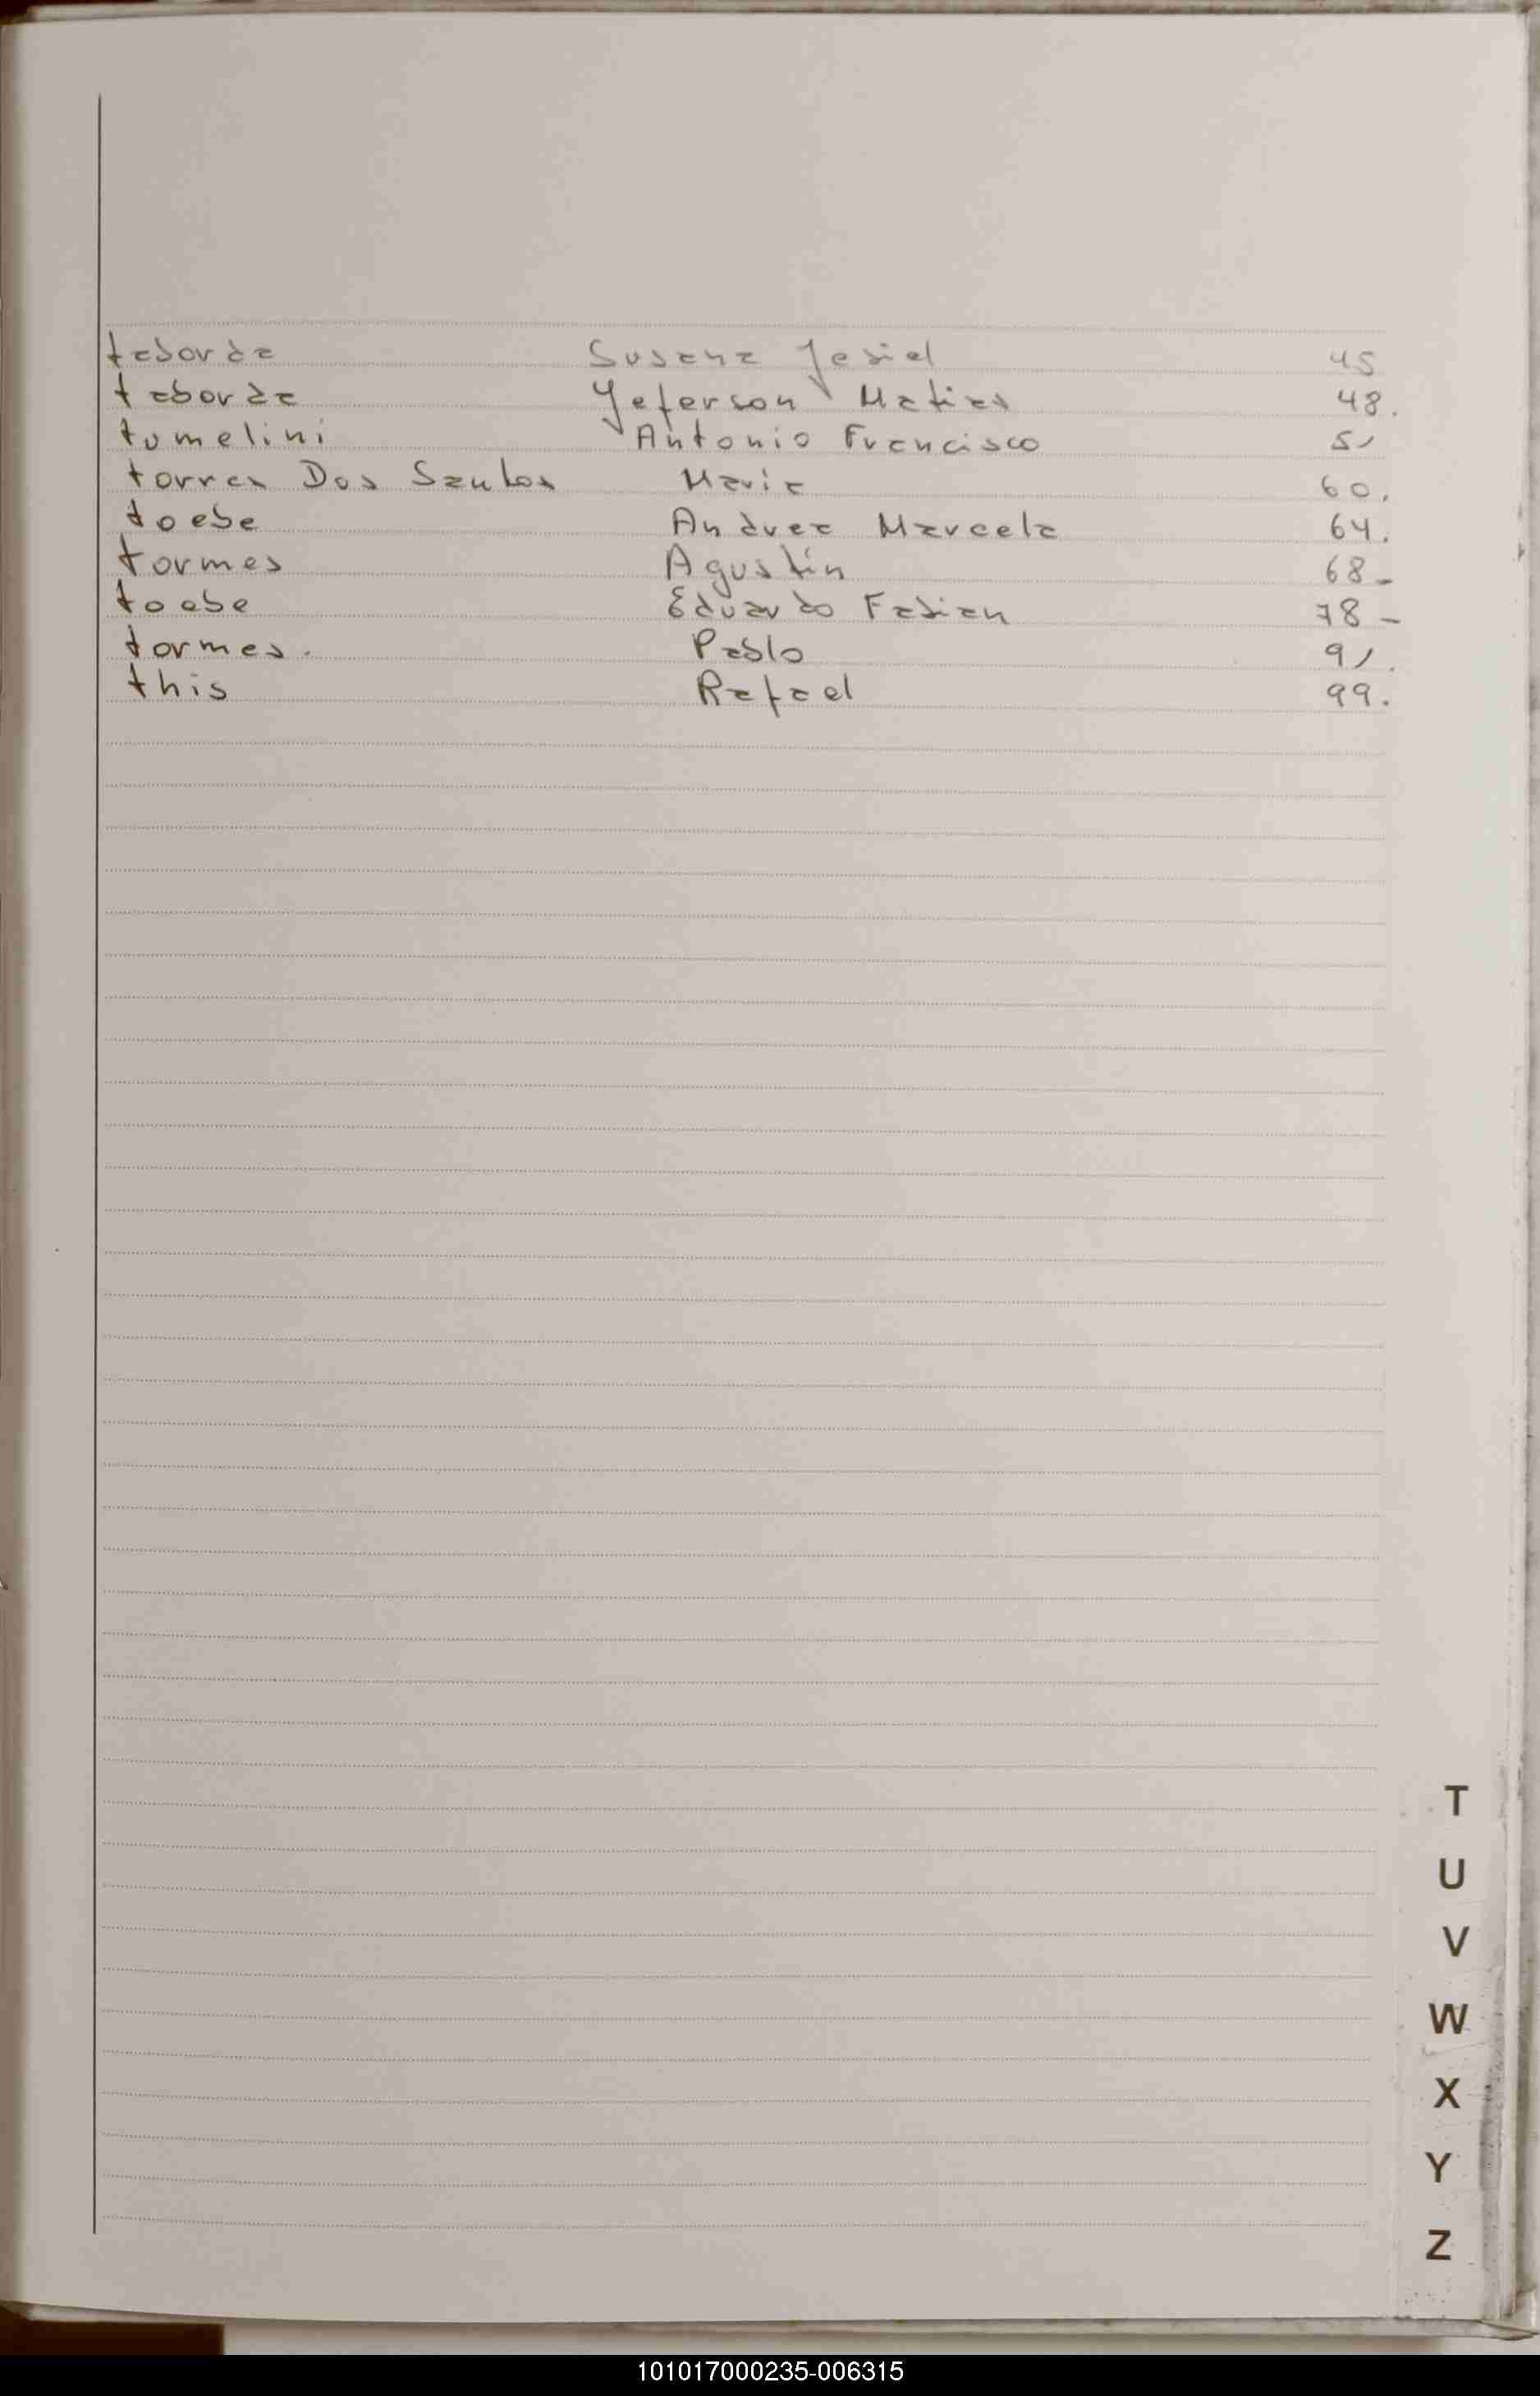 taborda Susana Yesiel 45
taborda Yeferson Matias 48.
tumelini Antonio Francisco 51
torres Dos Santos Maria 60.
toebe Andrea Marcela 64.
tormes Agustín 68-
toebe Eduardo Fabian 78-
tormes. Pablo 91.
this Rafael 99.
T
U
V
W
X
Y
Z
101017000235-006315